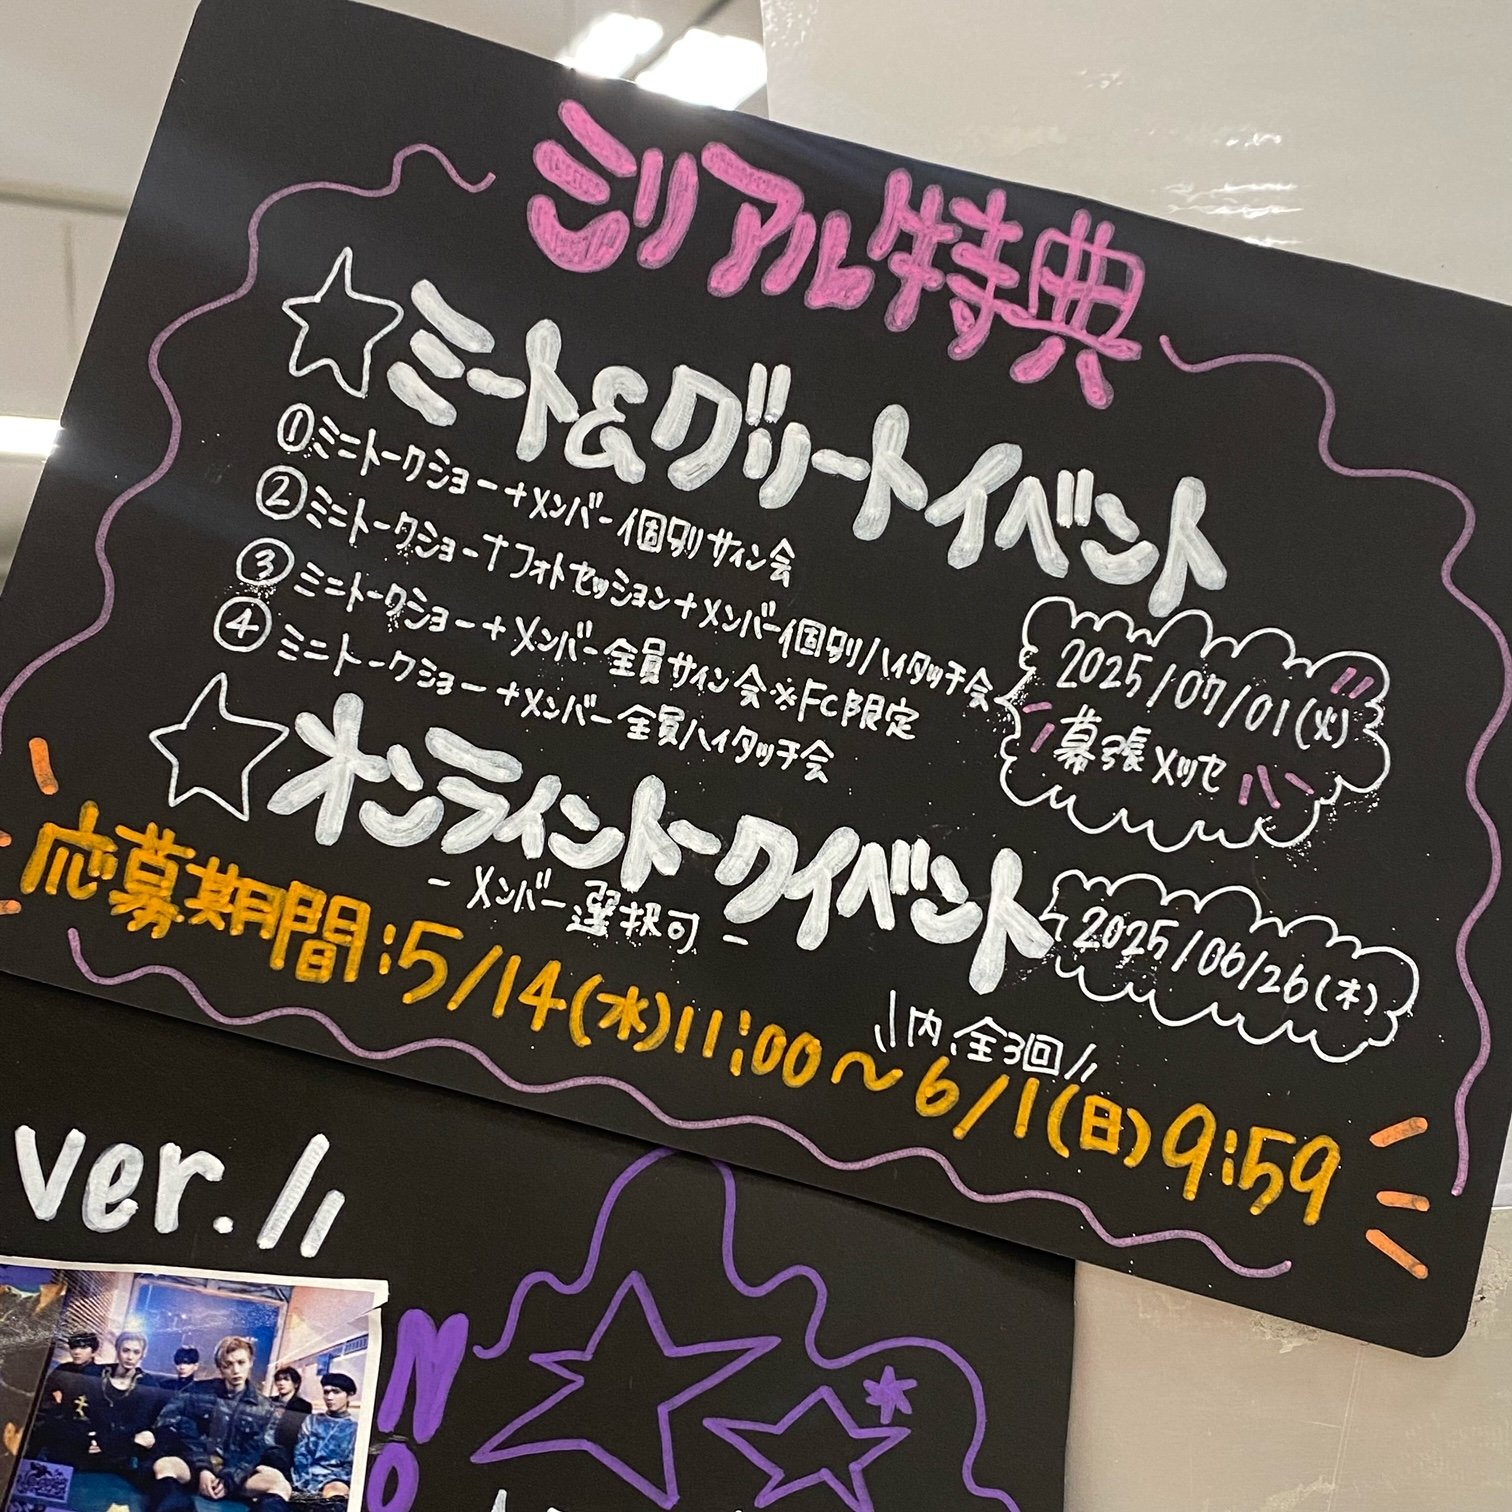 シリアル特典
☆ミート&グリートイベント
①ミニトークショー+メンバー個別サイン会
②ミニトークショー+フォトセッション+メンバー個別ハイタッチ会
③ミニトークショー+メンバー全員サイン会※FC限定
④ミニトークショー+メンバー全員ハイタッチ会
2025/07/01(火)
幕張メッセ
☆オンライントークイベント
-メンバー選択可-
2025/06/26(木)
\\内、全3回//
応募期間:5/14(水)11:00～6/1(日)9:59
ver.//
NO